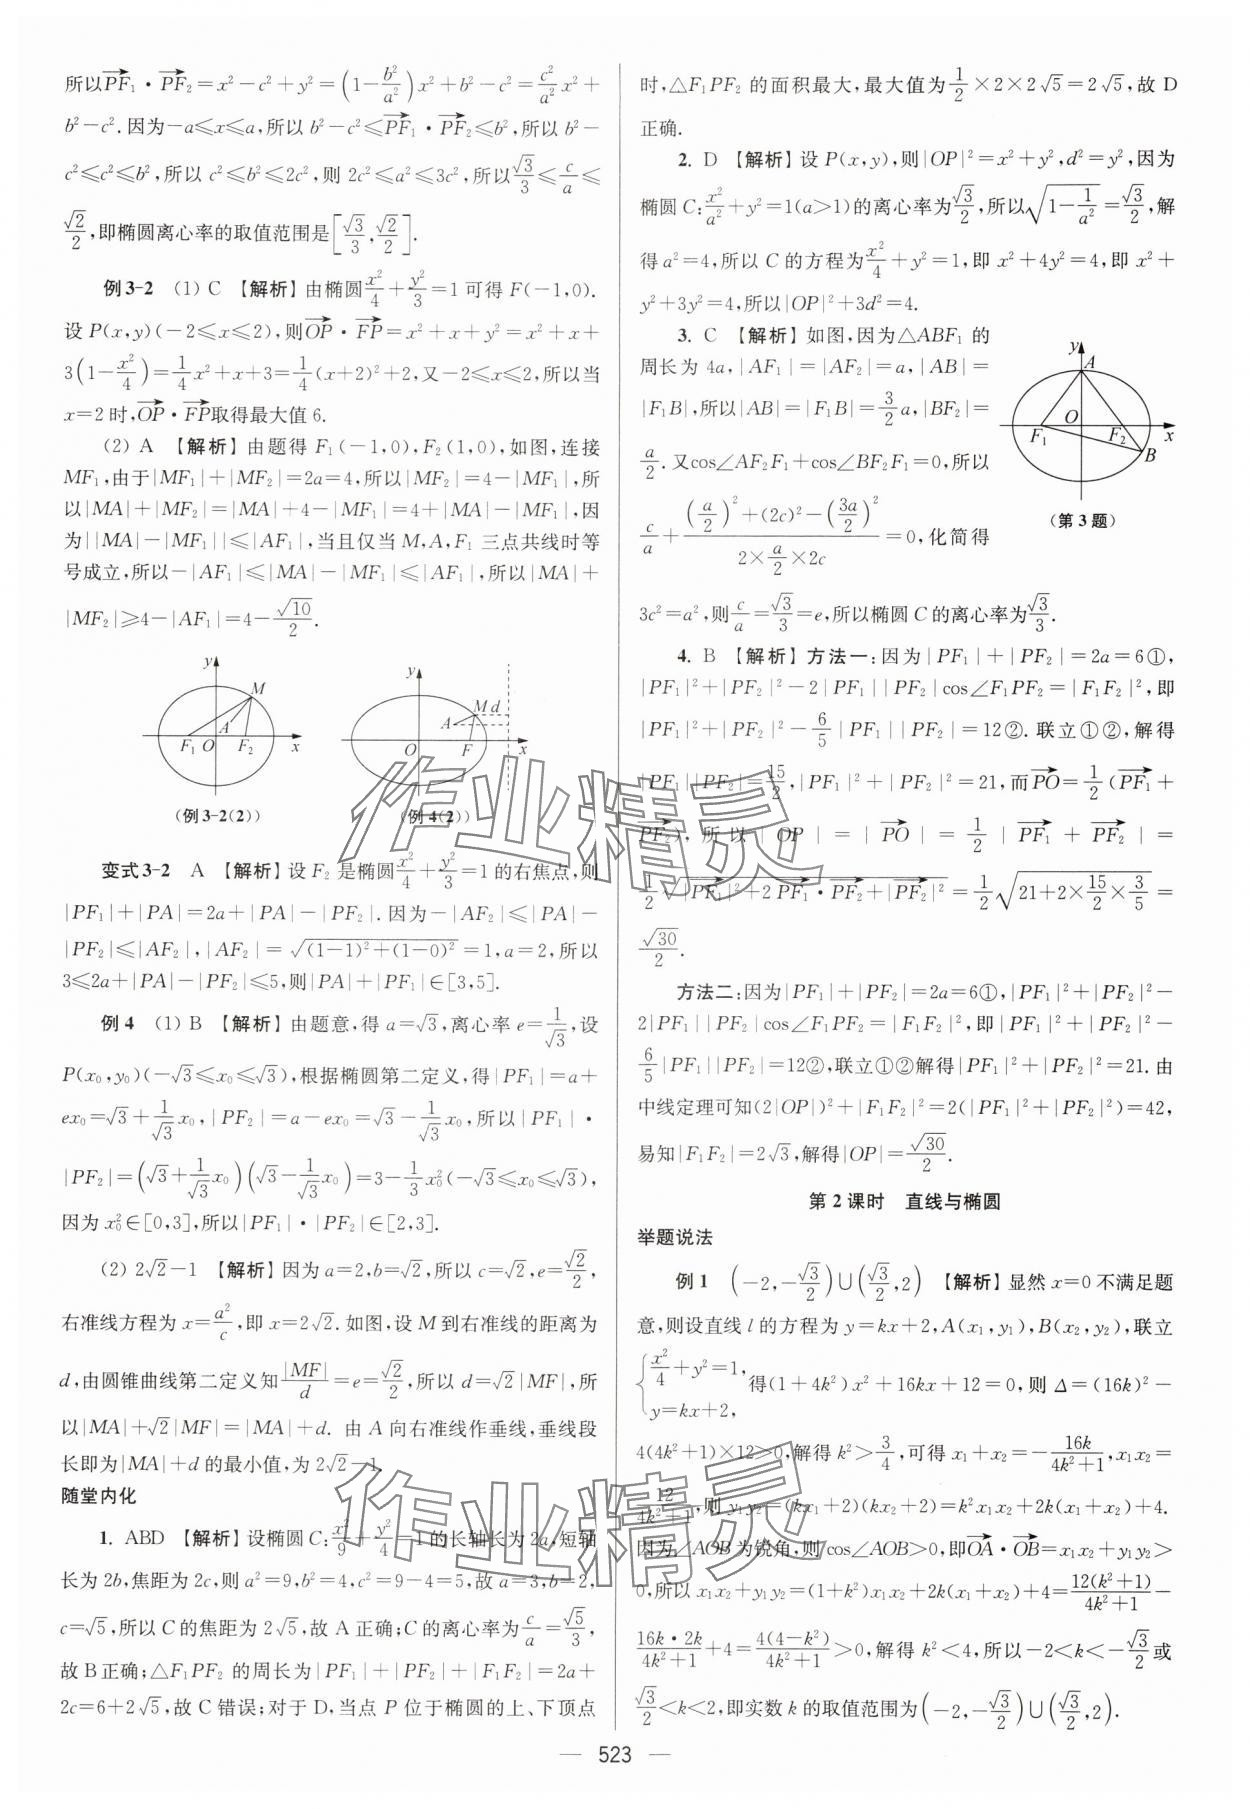 所以$\overrightarrow{PF_1}\cdot\overrightarrow{PF_2}=x^2-c^2+y^2=\left(1-\frac{b^2}{a^2}\right)x^2+b^2-c^2=\frac{c^2}{a^2}x^2+$
$b^2-c^2$.因为$-a\leqslant x\leqslant a$,所以$b^2-c^2\leqslant\overrightarrow{PF_1}\cdot\overrightarrow{PF_2}\leqslant b^2$,所以$b^2-$
$c^2\leqslant c^2\leqslant b^2$,所以$c^2\leqslant b^2\leqslant 2c^2$,则$2c^2\leqslant a^2\leqslant 3c^2$,所以$\frac{\sqrt3}{3}\leqslant\frac{c}{a}\leqslant$
$\frac{\sqrt2}{2}$,即椭圆离心率的取值范围是$\left[\frac{\sqrt3}{3},\frac{\sqrt2}{2}\right]$.
例3-2 (1) C 【解析】由椭圆$\frac{x^2}{4}+\frac{y^2}{3}=1$可得$F(-1,0)$.
设$P(x,y)(-2\leqslant x\leqslant 2)$,则$\overrightarrow{OP}\cdot\overrightarrow{FP}=x^2+x+y^2=x^2+x+$
$3\left(1-\frac{x^2}{4}\right)=\frac14x^2+x+3=\frac14(x+2)^2+2$,又$-2\leqslant x\leqslant 2$,所以当
$x=2$时,$\overrightarrow{OP}\cdot\overrightarrow{FP}$取得最大值6.
(2) A 【解析】由题得$F_1(-1,0),F_2(1,0)$,如图,连接
$MF_1$,由于$|MF_1|+|MF_2|=2a=4$,所以$|MF_2|=4-|MF_1|$,所
以$|MA|+|MF_2|=|MA|+4-|MF_1|=4+|MA|-|MF_1|$,因
为$||MA|-|MF_1||\leqslant|AF_1|$,当且仅当$M,A,F_1$三点共线时等
号成立,所以$-|AF_1|\leqslant|MA|-|MF_1|\leqslant|AF_1|$,所以$|MA|+$
$|MF_2|\geqslant 4-|AF_1|=4-\frac{\sqrt{10}}{2}$.
y M A F₁ O F₂ x
(例3-2(2))
y M d A O F x
(例4(2))
变式3-2 A 【解析】设$F_2$是椭圆$\frac{x^2}{4}+\frac{y^2}{3}=1$的右焦点,则
$|PF_1|+|PA|=2a+|PA|-|PF_2|$.因为$-|AF_2|\leqslant|PA|-$
$|PF_2|\leqslant|AF_2|,|AF_2|=\sqrt{(1-1)^2+(1-0)^2}=1,a=2$,所以
$3\leqslant 2a+|PA|-|PF_2|\leqslant 5$,则$|PA|+|PF_1|\in[3,5]$.
例4 (1) B 【解析】由题意,得$a=\sqrt3$,离心率$e=\frac{1}{\sqrt3}$,设
$P(x_0,y_0)(-\sqrt3\leqslant x_0\leqslant\sqrt3)$,根据椭圆第二定义,得$|PF_1|=a+$
$ex_0=\sqrt3+\frac{1}{\sqrt3}x_0,|PF_2|=a-ex_0=\sqrt3-\frac{1}{\sqrt3}x_0$,所以$|PF_1|\cdot$
$|PF_2|=\left(\sqrt3+\frac{1}{\sqrt3}x_0\right)\left(\sqrt3-\frac{1}{\sqrt3}x_0\right)=3-\frac13x_0^2(-\sqrt3\leqslant x_0\leqslant\sqrt3)$,
因为$x_0^2\in[0,3]$,所以$|PF_1|\cdot|PF_2|\in[2,3]$.
(2) $2\sqrt2-1$ 【解析】因为$a=2,b=\sqrt2$,所以$c=\sqrt2,e=\frac{\sqrt2}{2}$,
右准线方程为$x=\frac{a^2}{c}$,即$x=2\sqrt2$.如图,设M到右准线的距离为
$d$,由圆锥曲线第二定义知$\frac{|MF|}{d}=e=\frac{\sqrt2}{2}$,所以$d=\sqrt2|MF|$,所
以$|MA|+\sqrt2|MF|=|MA|+d$. 由A向右准线作垂线,垂线段
长即为$|MA|+d$的最小值,为$2\sqrt2-1$.
随堂内化
1. ABD 【解析】设椭圆$C:\frac{x^2}{9}+\frac{y^2}{4}=1$的长轴长为$2a$,短轴
长为$2b$,焦距为$2c$,则$a^2=9,b^2=4,c^2=9-4=5$,故$a=3,b=2$,
$c=\sqrt5$,所以C的焦距为$2\sqrt5$,故A正确;C的离心率为$\frac{c}{a}=\frac{\sqrt5}{3}$,
故B正确;$\triangle F_1PF_2$的周长为$|PF_1|+|PF_2|+|F_1F_2|=2a+$
$2c=6+2\sqrt5$,故C错误;对于D,当点P位于椭圆的上、下顶点
时,$\triangle F_1PF_2$的面积最大,最大值为$\frac12\times2\times2\sqrt5=2\sqrt5$,故D
正确.
2. D 【解析】设$P(x,y)$,则$|OP|^2=x^2+y^2,d^2=y^2$,因为
椭圆$C:\frac{x^2}{a^2}+y^2=1(a>1)$的离心率为$\frac{\sqrt3}{2}$,所以$\sqrt{1-\frac{1}{a^2}}=\frac{\sqrt3}{2}$,解
得$a^2=4$,所以C的方程为$\frac{x^2}{4}+y^2=1$,即$x^2+4y^2=4$,即$x^2+$
$y^2+3y^2=4$,所以$|OP|^2+3d^2=4$.
3. C 【解析】如图,因为$\triangle ABF_1$的
周长为$4a,|AF_1|=|AF_2|=a,|AB|=$
$|F_1B|$,所以$|AB|=|F_1B|=\frac32a,|BF_2|=$
$\frac{a}{2}$.又$\cos\angle AF_2F_1+\cos\angle BF_2F_1=0$,所以
$\frac{c}{a}+\frac{\left(\frac{a}{2}\right)^2+(2c)^2-\left(\frac{3a}{2}\right)^2}{2\times\frac{a}{2}\times2c}=0$,化简得
y A O F₁ F₂ x B
(第3题)
$3c^2=a^2$,则$\frac{c}{a}=\frac{\sqrt3}{3}=e$,所以椭圆C的离心率为$\frac{\sqrt3}{3}$.
4. B 【解析】方法一:因为$|PF_1|+|PF_2|=2a=6$①,
$|PF_1|^2+|PF_2|^2-2|PF_1||PF_2|\cos\angle F_1PF_2=|F_1F_2|^2$,即
$|PF_1|^2+|PF_2|^2-\frac65|PF_1||PF_2|=12$②. 联立①②,解得
$|PF_1||PF_2|=\frac{15}{2},|PF_1|^2+|PF_2|^2=21$,而$\overrightarrow{PO}=\frac12(\overrightarrow{PF_1}+$
$\overrightarrow{PF_2})$,所以$|OP|=|\overrightarrow{PO}|=\frac12|\overrightarrow{PF_1}+\overrightarrow{PF_2}|=$
$\frac12\sqrt{|\overrightarrow{PF_1}|^2+2\overrightarrow{PF_1}\cdot\overrightarrow{PF_2}+|\overrightarrow{PF_2}|^2}=\frac12\sqrt{21+2\times\frac{15}{2}\times\frac35}=$
$\frac{\sqrt{30}}{2}$.
方法二:因为$|PF_1|+|PF_2|=2a=6$①,$|PF_1|^2+|PF_2|^2-$
$2|PF_1||PF_2|\cos\angle F_1PF_2=|F_1F_2|^2$,即$|PF_1|^2+|PF_2|^2-$
$\frac65|PF_1||PF_2|=12$②,联立①②解得$|PF_1|^2+|PF_2|^2=21$.由
中线定理可知$(2|OP|)^2+|F_1F_2|^2=2(|PF_1|^2+|PF_2|^2)=42$,
易知$|F_1F_2|=2\sqrt3$,解得$|OP|=\frac{\sqrt{30}}{2}$.
第2课时 直线与椭圆
举题说法
例1 $\left(-2,-\frac{\sqrt3}{2}\right)\cup\left(\frac{\sqrt3}{2},2\right)$ 【解析】显然$x=0$不满足题
意,则设直线$l$的方程为$y=kx+2,A(x_1,y_1),B(x_2,y_2)$,联立
$\begin{cases}\frac{x^2}{4}+y^2=1,\\y=kx+2,\end{cases}$得$(1+4k^2)x^2+16kx+12=0$,则$\Delta=(16k)^2-$
$4(4k^2+1)\times12>0$,解得$k^2>\frac34$,可得$x_1+x_2=-\frac{16k}{4k^2+1},x_1x_2=$
$\frac{12}{4k^2+1}$,则$y_1y_2=(kx_1+2)(kx_2+2)=k^2x_1x_2+2k(x_1+x_2)+4$.
因为$\angle AOB$为锐角,则$\cos\angle AOB>0$,即$\overrightarrow{OA}\cdot\overrightarrow{OB}=x_1x_2+y_1y_2>$
$0$,所以$x_1x_2+y_1y_2=(1+k^2)x_1x_2+2k(x_1+x_2)+4=\frac{12(k^2+1)}{4k^2+1}-$
$\frac{16k\cdot2k}{4k^2+1}+4=\frac{4(4-k^2)}{4k^2+1}>0$,解得$k^2<4$,所以$-2<k<-\frac{\sqrt3}{2}$或
$\frac{\sqrt3}{2}<k<2$,即实数$k$的取值范围为$\left(-2,-\frac{\sqrt3}{2}\right)\cup\left(\frac{\sqrt3}{2},2\right)$.
— 523 —
作业精灵
作业精灵